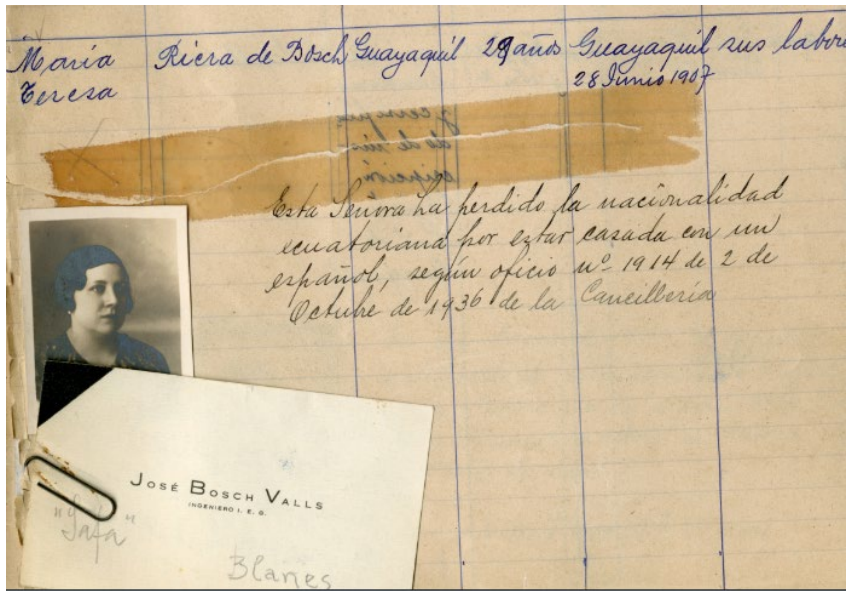 María Riera de Bosch Guayaquil 29 años Guayaquil sus labore
Teresa 28 Junio 1907
Esta Señora ha perdido la nacionalidad
ecuatoriana por estar casada con un
español, según oficio nº 1914 de 2 de
Octubre de 1936 de la Cancillería
JOSÉ BOSCH VALLS
INGENIERO I. E. G.
"Safa"
Blanes